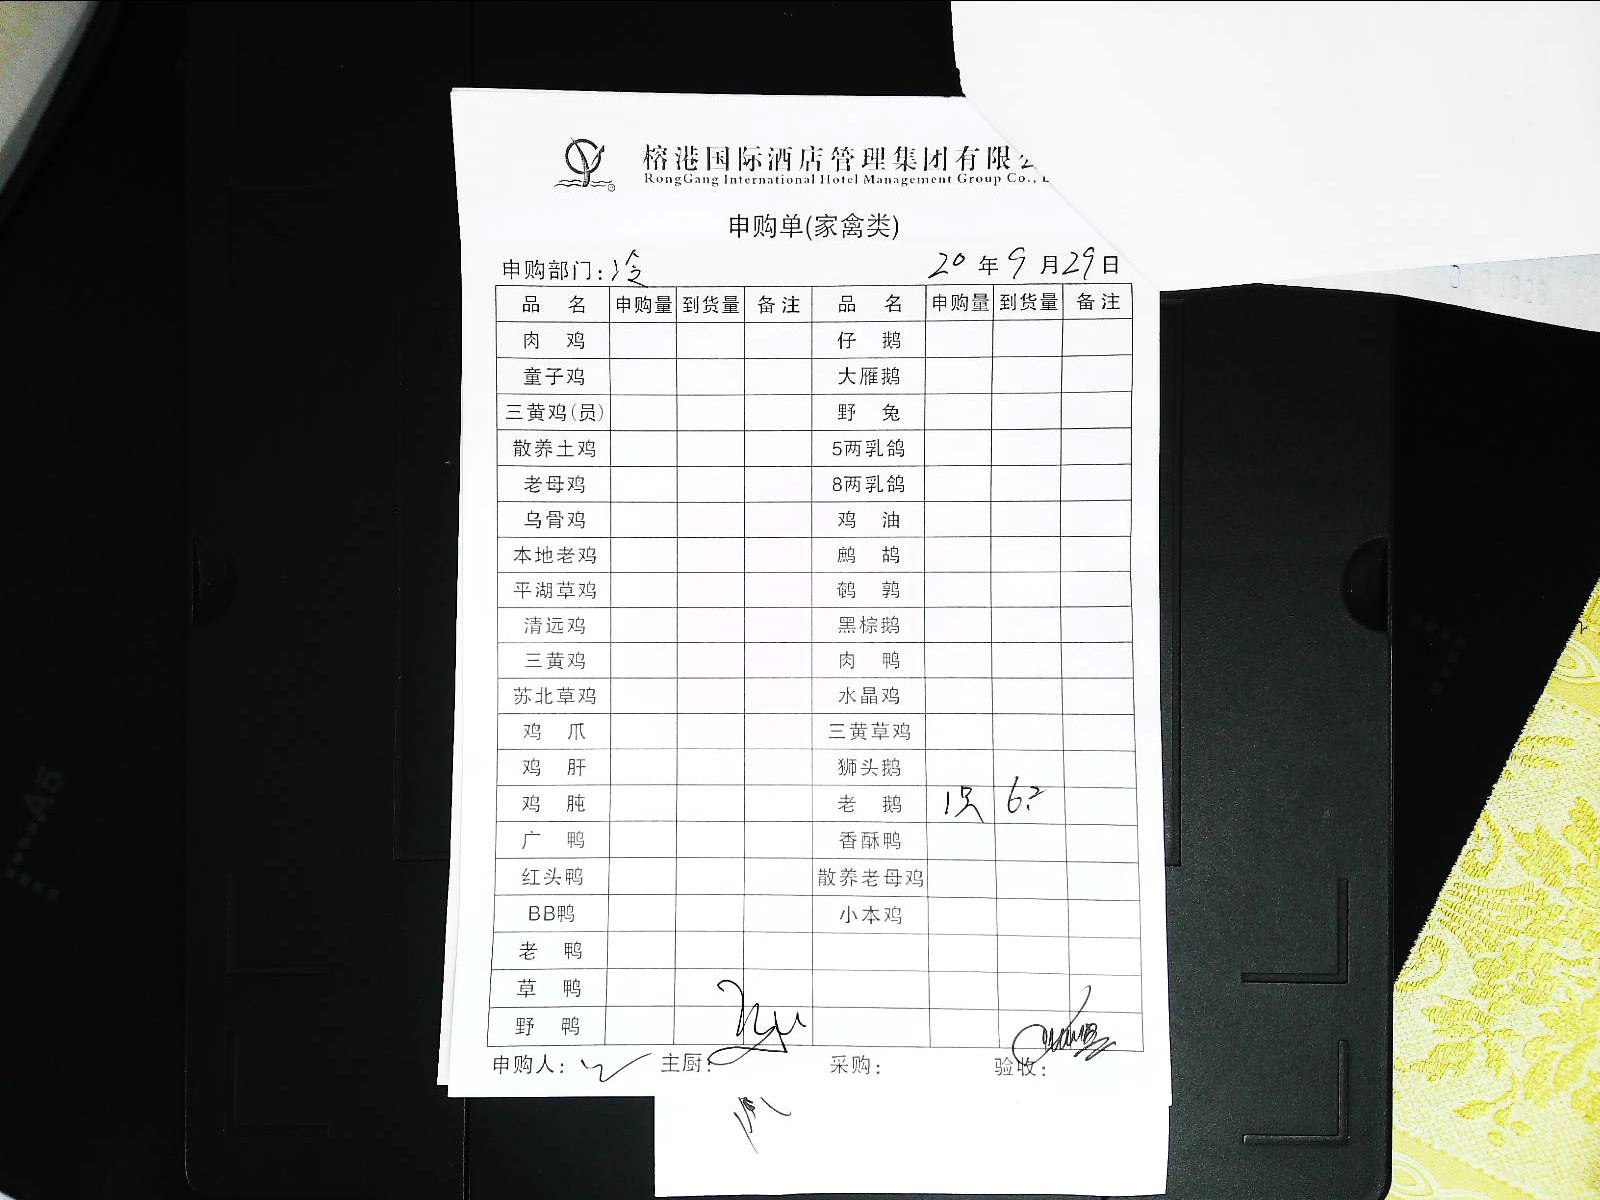 榕港国际酒店管理集团有限
RongGang International Hotel Management Group Co.,
申购单(家禽类)
申购部门:冷 20年9月29日
品 名 申购量 到货量 备注 品 名 申购量 到货量 备注
肉 鸡 仔 鹅
童子鸡 大雁鹅
三黄鸡(员) 野 兔
散养土鸡 5两乳鸽
老母鸡 8两乳鸽
乌骨鸡 鸡 油
本地老鸡 鹧 鸪
平湖草鸡 鹌 鹑
清远鸡 黑棕鹅
三黄鸡 肉 鸭
苏北草鸡 水晶鸡
鸡 爪 三黄草鸡
鸡 肝 狮头鹅
鸡 肫 老 鹅 1只 6.2
广 鸭 香酥鸭
红头鸭 散养老母鸡
BB鸭 小本鸡
老 鸭
草 鸭
野 鸭
申购人: 主厨: 采购: 验收: